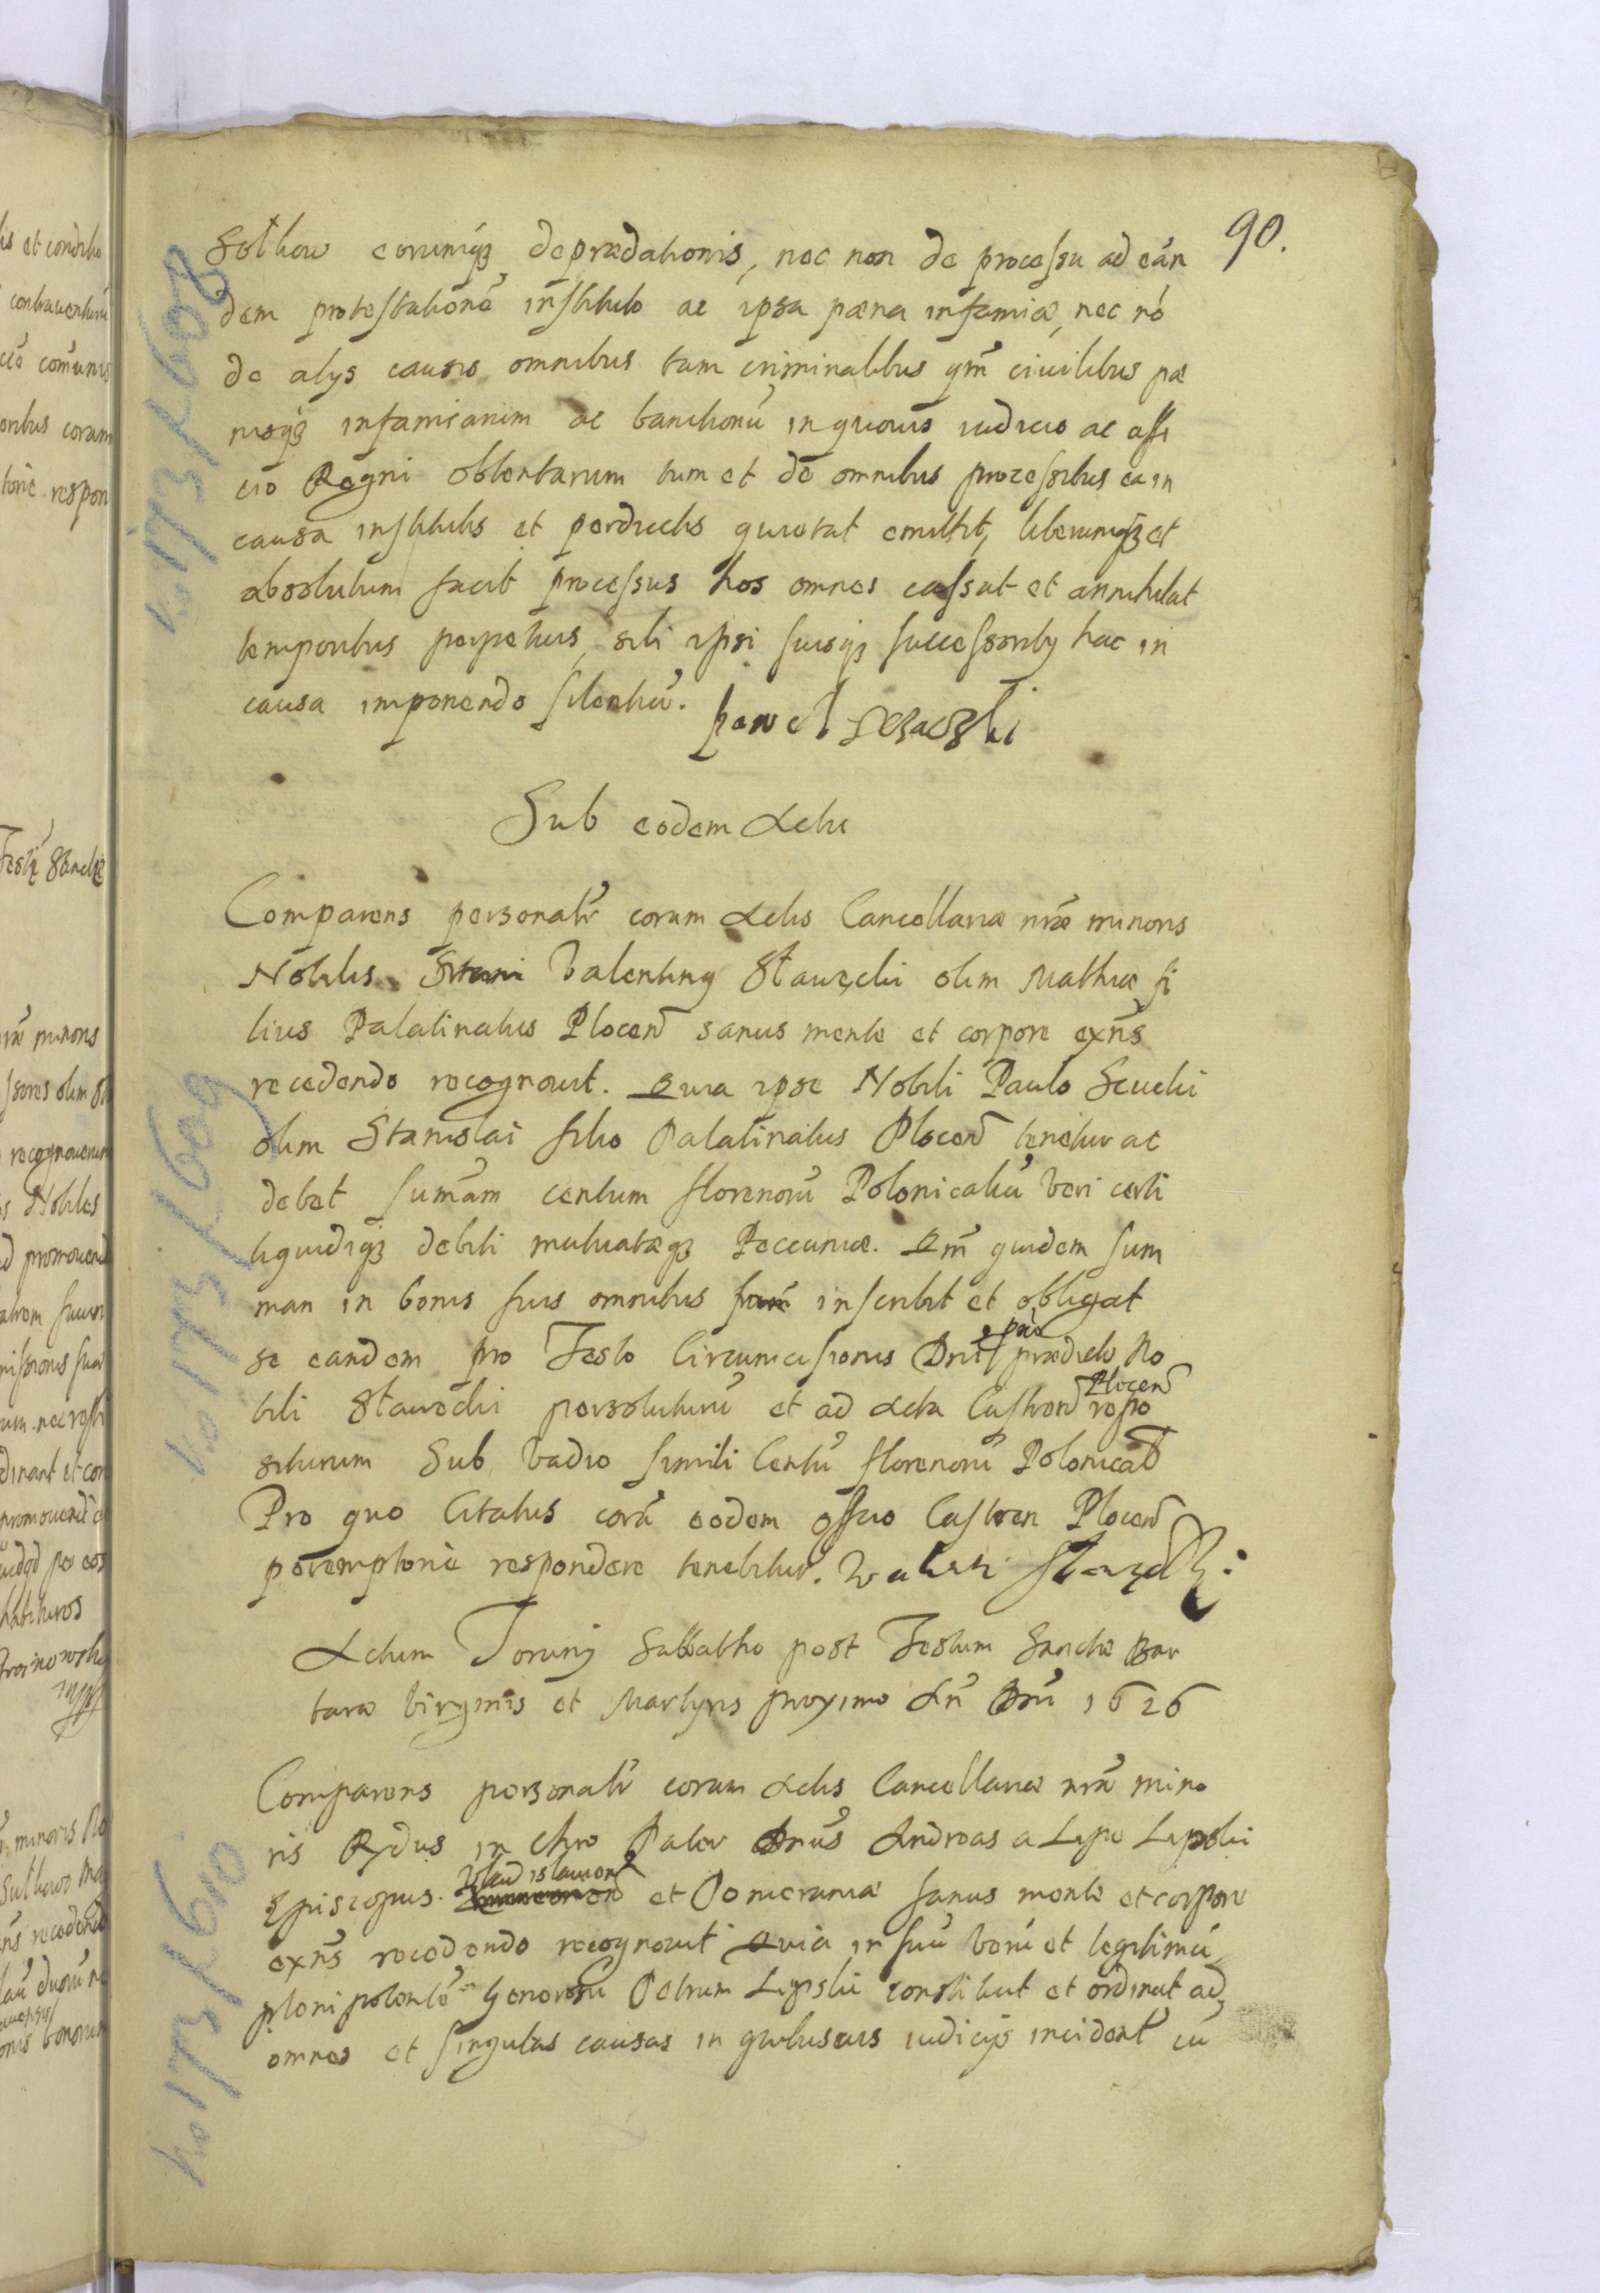 90.
eorumq3 depraedationis, nec non de processu ad eán
dem protestationē instituto ac ipsa paena infamiae, nec nō
de alys causis omnibus tam criminalibus qm̄ ciuilibus pae
nisq3 infamiarum ac banitionū in quouis iudicio ac offi
cio Regni obtentarum tum et de omnibus processibus ea in
causa institutis et perductis quietat emittit, liberumq3 et
absolutum facit processus hos omnes cassat et annihilat
temporibus perpetuis, sibi ipsi suisq3 successorib9 hac in
causa imponendo silentiū. Pawel
Sub eodem Actu
Comparens personalr̄ coram Actis Cancellariae nrae minoris
Nobilis Valentin9 Stawęcki olim Mathiae fi
lius Palatinatus Plocen̄ sanus mente et corpore exn̄s
recedendo recognouit. Quia ipse Nobili Paulo Seucki
olim Stanislai filio Palatinatus Plocen̄ tenetur ac
debet sum̄am centum florenorū Polonicaliū veri certi
liquidiq3 debiti mutuatаeq3 Peccuniae. Qm̄ quidem sum
mam in bonis suis omnibus inscribit et obligat
se eandem pro Festo Circumcisionis Dnī praedicto No
bili Stawecki persoluturū et ad Acta Castren̄ Plocen̄ repo
siturum Sub vadio simili Centū florenorū Polonical
Pro quo Citatus corā eodem officio Castren Plocen̄
peremptorie respondere tenebitur. Walenti
Actum Toruny Sabbatho post Festum Sanctae Bar
barae Virginis et Martyris proximo An̄ Dnī 1626
Comparens personalr̄ coram Actis Cancellariae nrae mino
ris Rndus in Chro Pater Dnūs Andreas a Lipe Lipski
Episcopus Vladislauien̄ et Pomeraniae sanus mente et corpore
exn̄s recedendo recognouit Quia in suū verū et legitimū
plenipotentē Generosū Petrum Lipski constituit et ordinat ad
omnes et singulas causas in quibusuis iudicijs incident̄ cū
k. 173/608
k. 173/609
k. 173/610